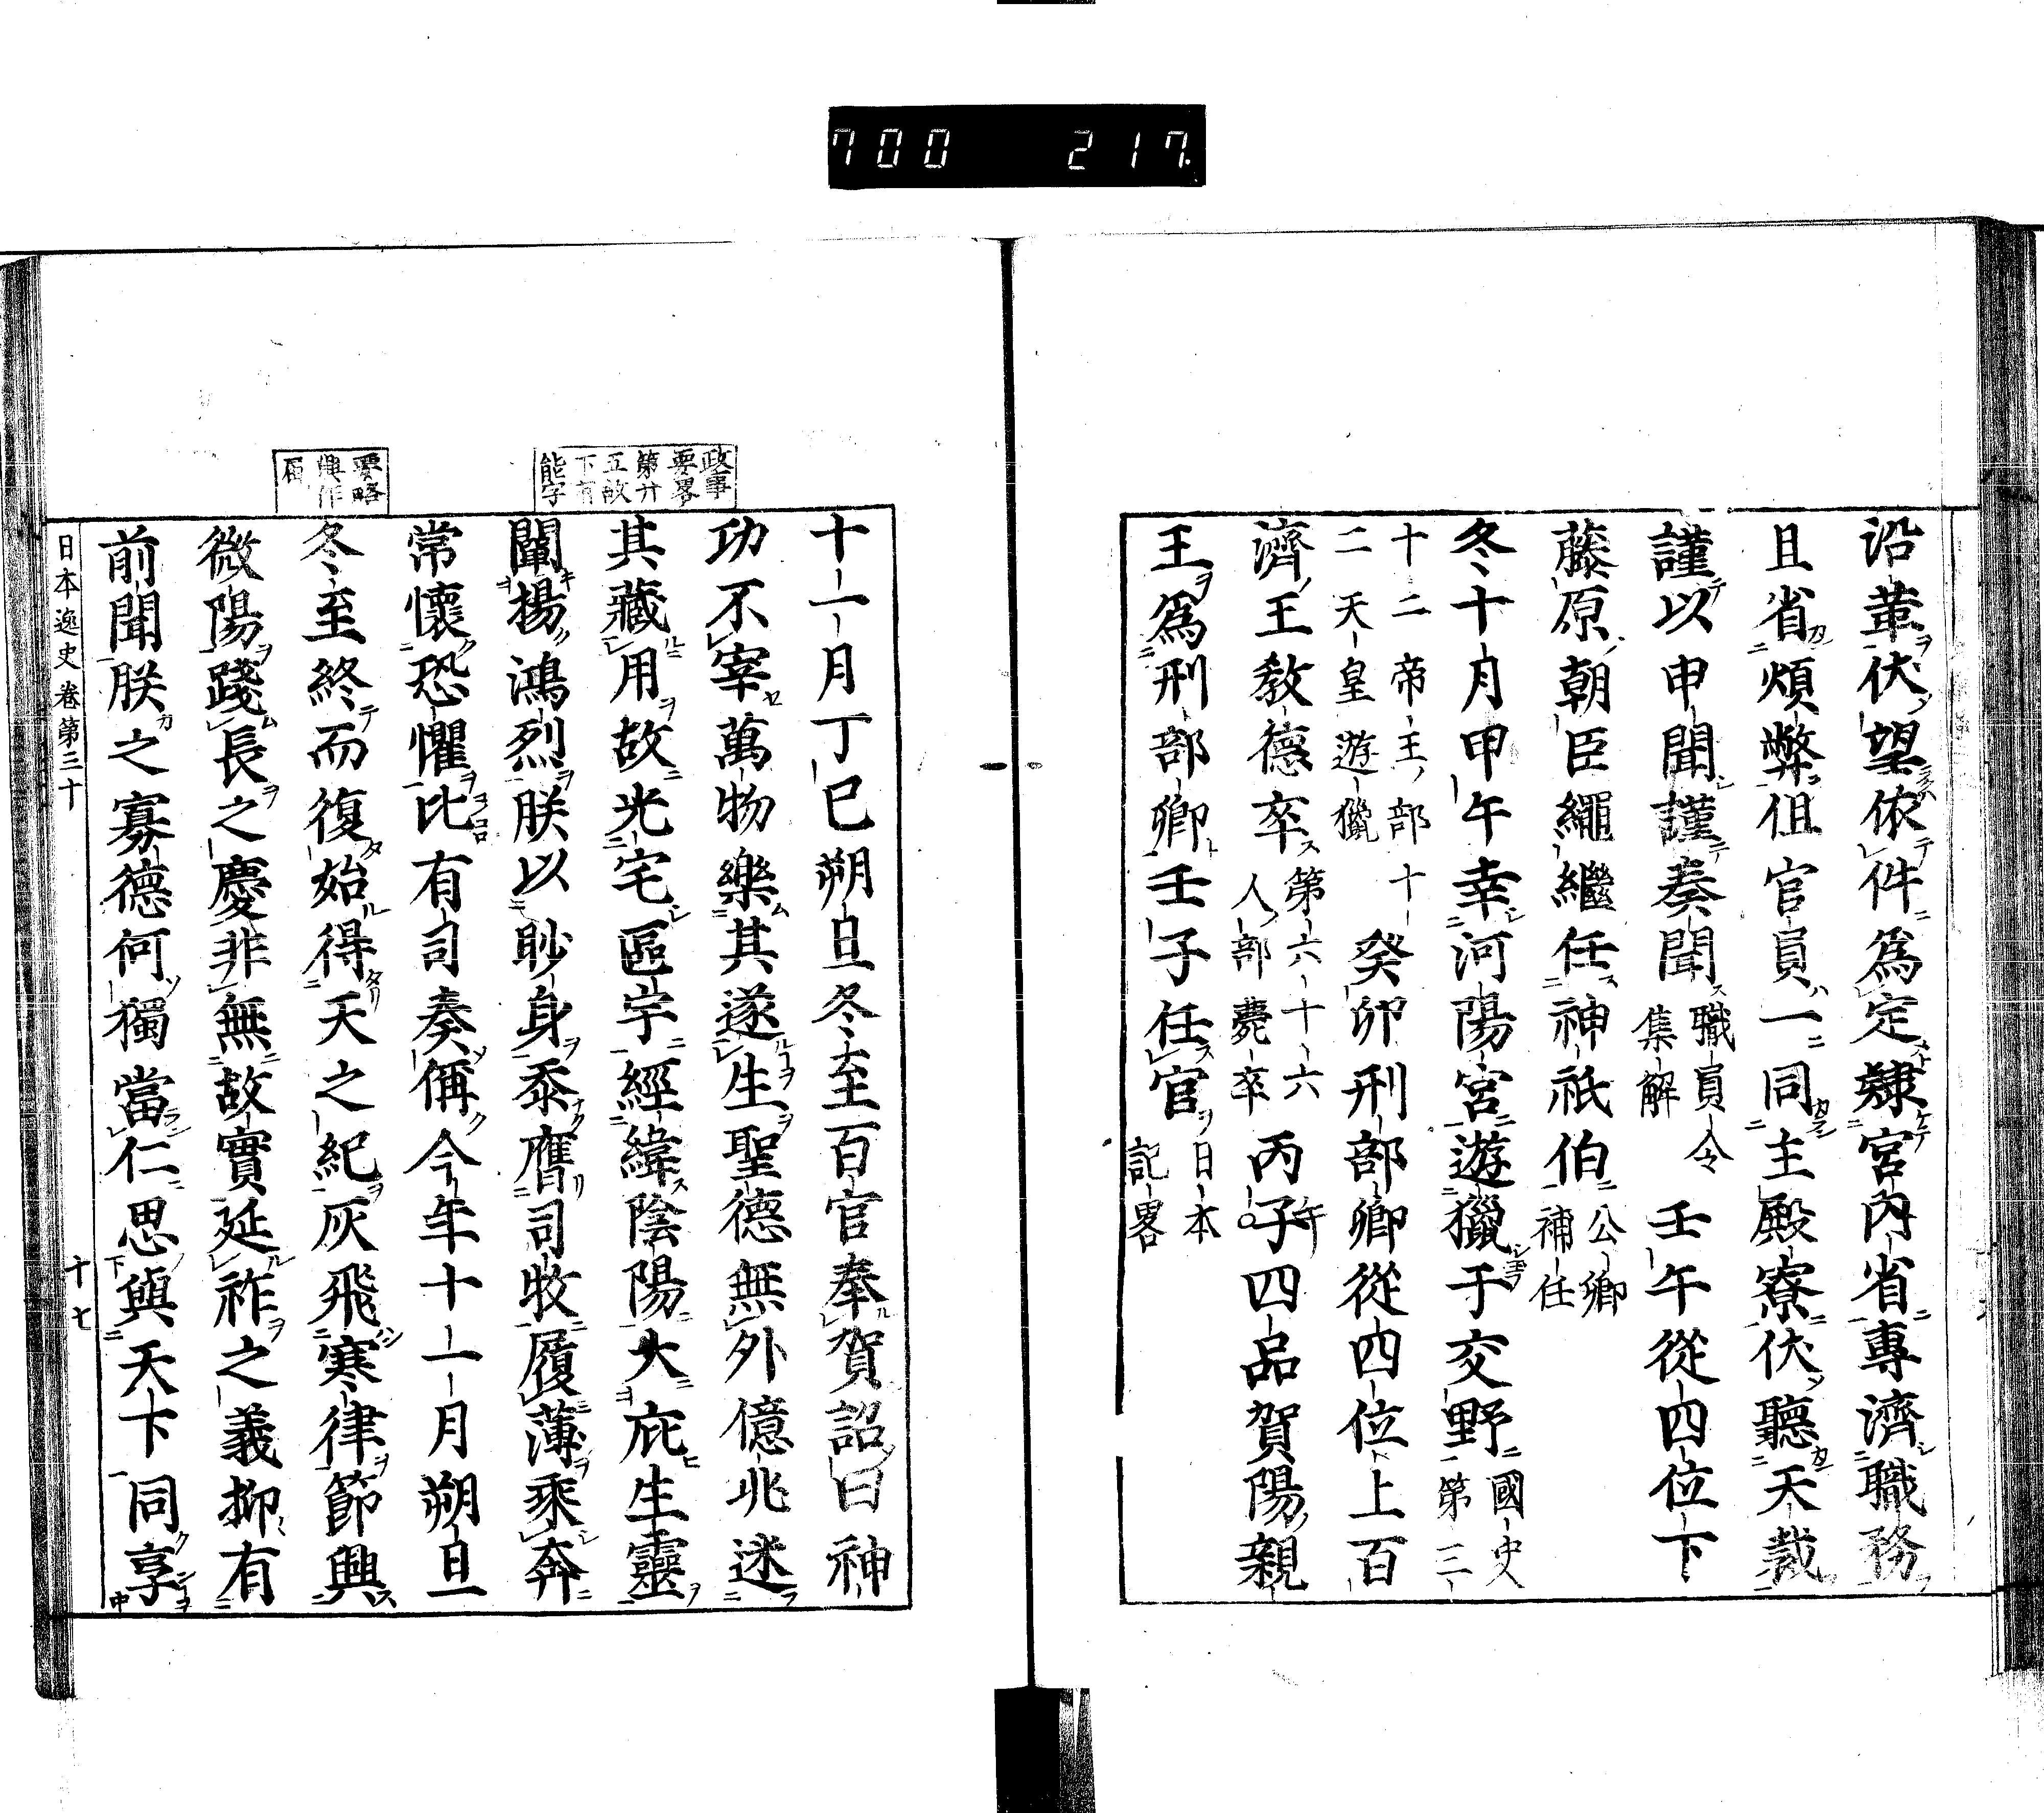 700 217
沿革伏望依件爲定隷宮内省專濟職務
且省煩弊但官員一同主殿寮伏聽天裁
謹以申聞謹奏聞職員令集解壬午從四位下
藤原朝臣繩繼任神祇伯公卿補任
冬十月甲午幸河陽宮遊獵于交野國史第三
十二帝王部十二天皇遊獵癸卯刑部卿從四位上百
濟王教德卒第六十六人部薨卒丙子四品賀陽親
王爲刑部卿壬子任官日本記畧
政事
要畧
第廿
五故
下有
能字
要略
興作
十一月丁巳朔旦冬至百官奉賀詔曰神
功不宰萬物樂其遂生聖德無外億兆迷
其藏用故光宅區宇經緯陰陽大庇生靈
闡揚鴻烈朕以眇身忝膺司牧履薄乘奔
常懷恐懼比有司奏偁今年十一月朔旦
冬至終而復始得天之紀灰飛寒律節興
微陽踐長之慶非無故實延祚之義抑有
前聞朕之寡德何獨當仁思與天下同享
日本逸史 卷第三十 十七